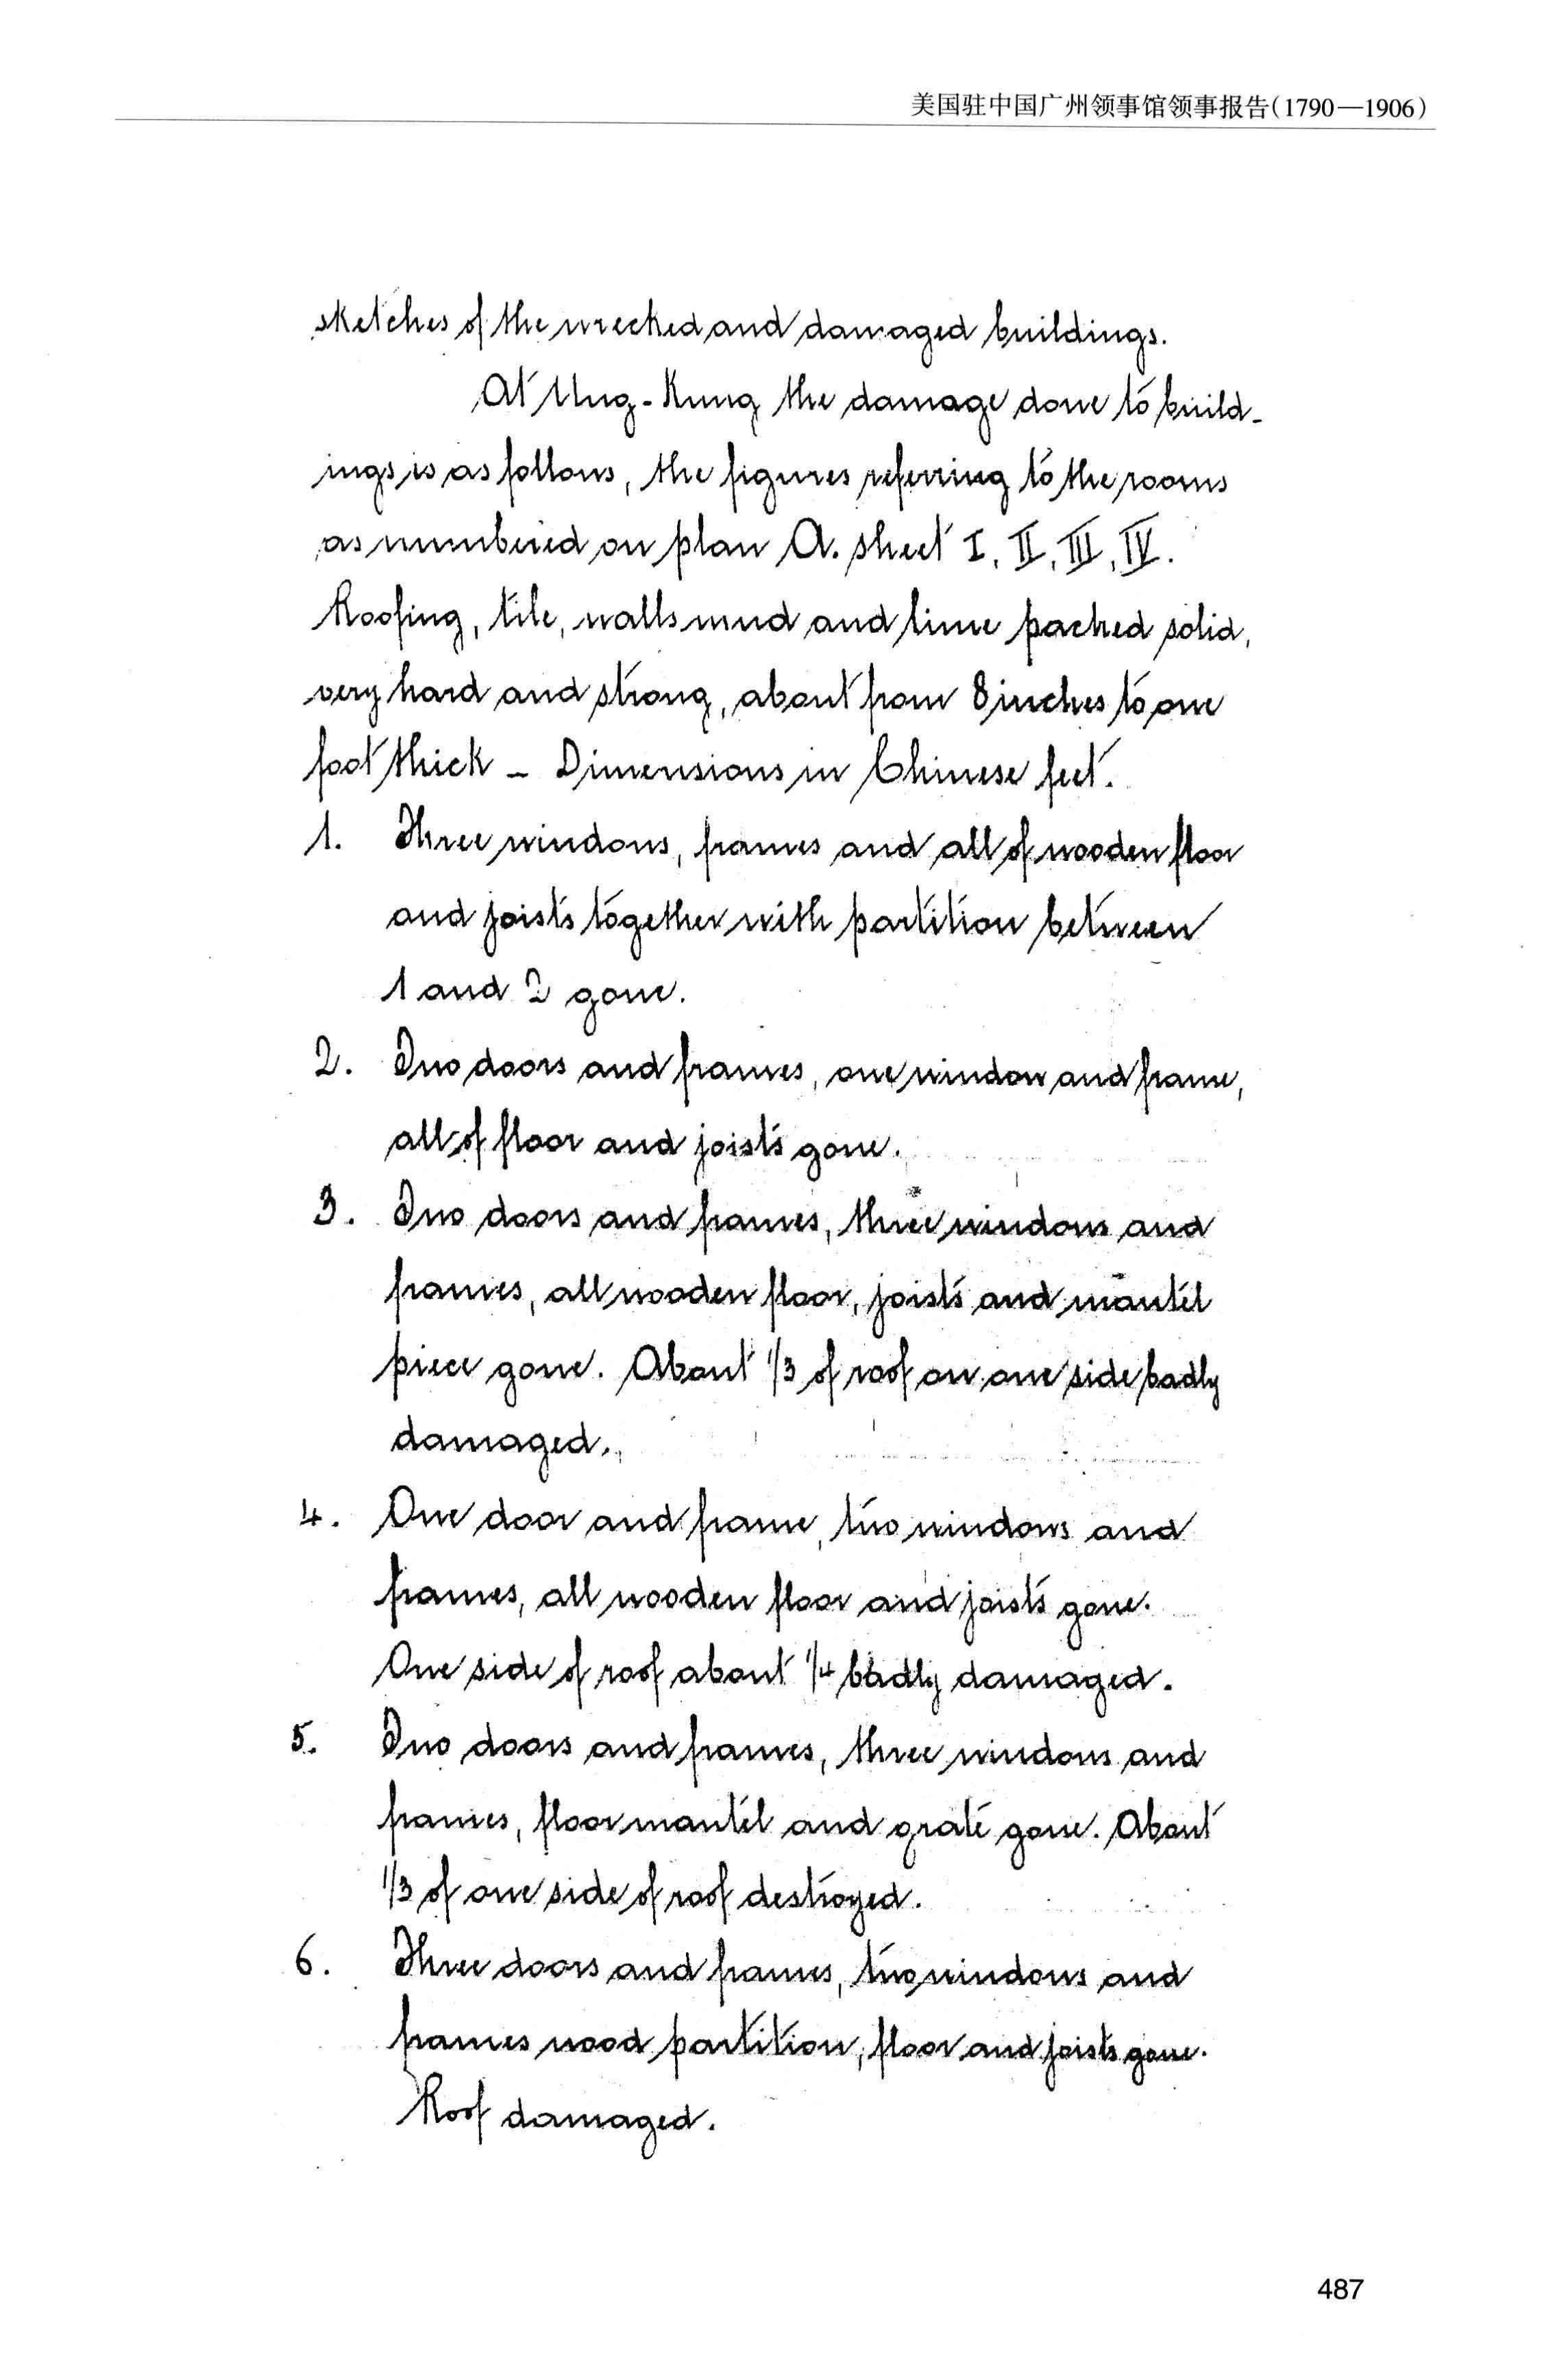 美国驻中国广州领事馆领事报告(1790—1906)
sketches of the wrecked and damaged buildings.
At Ung-Kung the damage done to build-
ings is as follows, the figures referring to the rooms
as numbered on plan A. sheet I, II, III, IV.
Roofing, tile, walls mud and lime packed solid,
very hard and strong, about from 8 inches to one
foot thick – Dimensions in Chinese feet.
1. Three windows, frames and all of wooden floor
and joists together with partition between
1 and 2 gone.
2. Two doors and frames, one window and frame,
all of floor and joists gone.
3. Two doors and frames, three windows and
frames, all wooden floor, joists and mantel
piece gone. About 1/3 of roof on one side badly
damaged.
4. One door and frame, two windows and
frames, all wooden floor and joists gone.
One side of roof about 1/4 badly damaged.
5. Two doors and frames, three windows and
frames, floor mantel and grate gone. About
1/3 of one side of roof destroyed.
6. Three doors and frames, two windows and
frames wood partition, floor and joists gone.
Roof damaged.
487